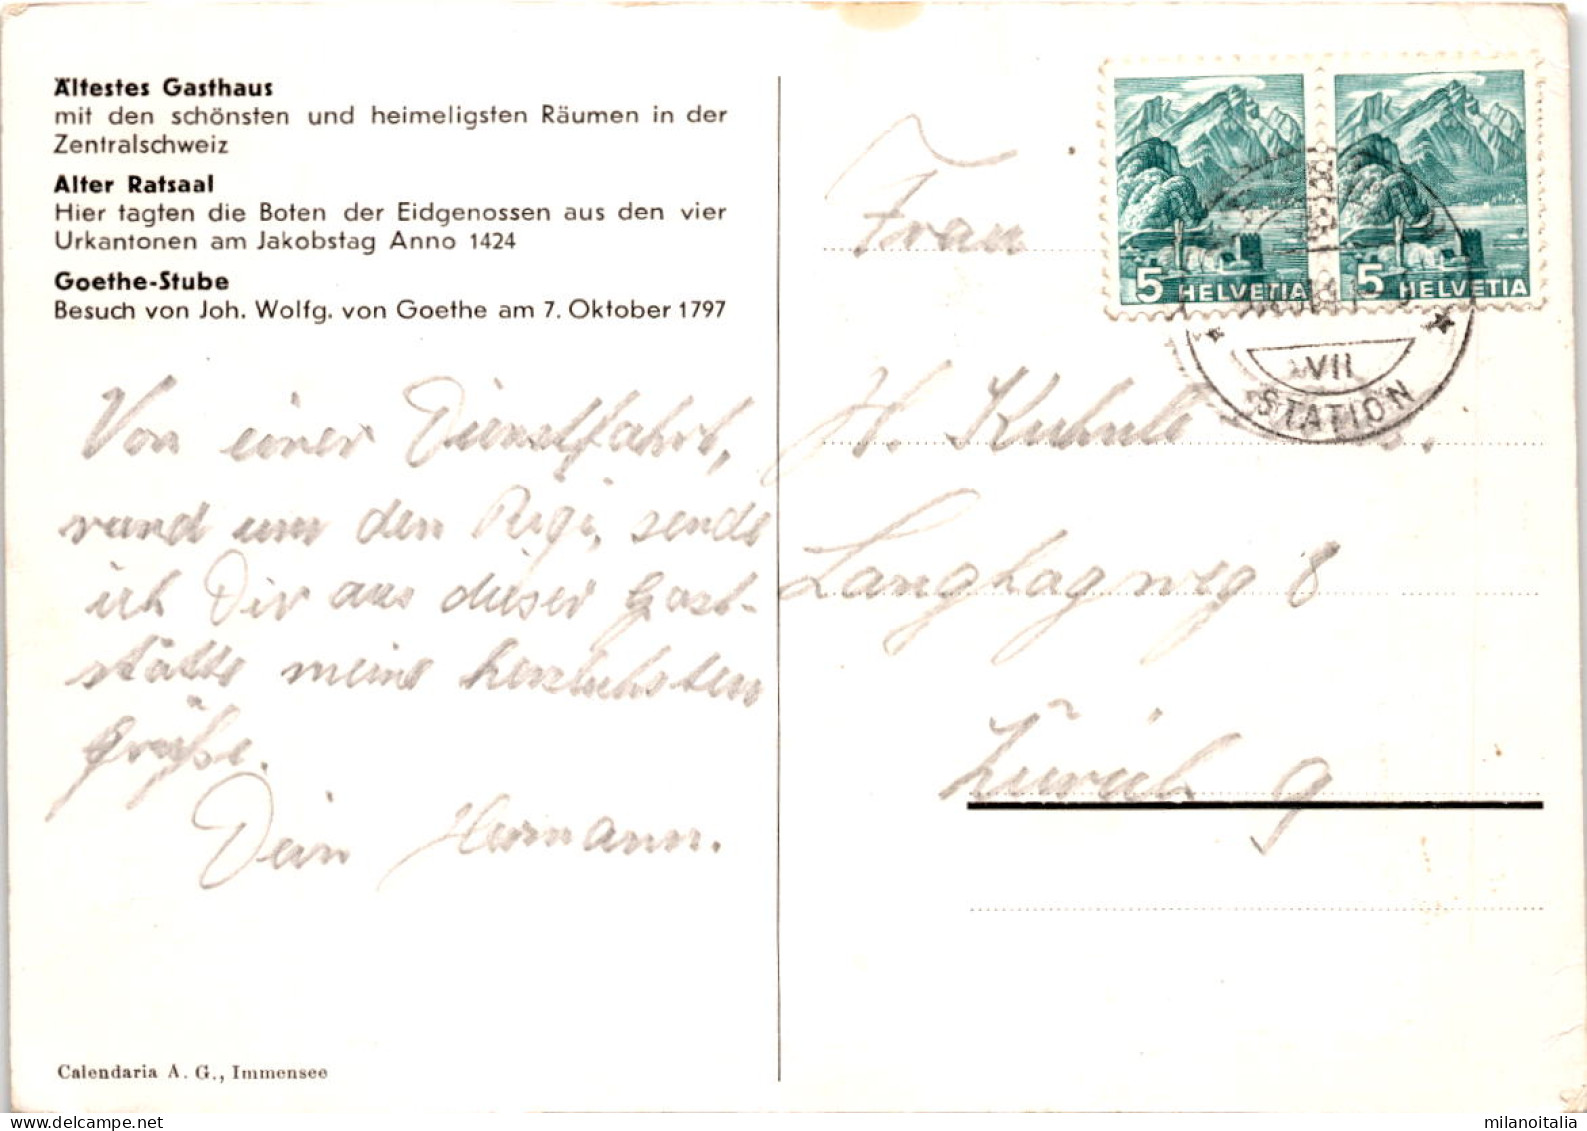 Ältestes Gasthaus
mit den schönsten und heimeligsten Räumen in der
Zentralschweiz
Alter Ratsaal
Hier tagten die Boten der Eidgenossen aus den vier
Urkantonen am Jakobstag Anno 1424
Goethe-Stube
Besuch von Joh. Wolfg. von Goethe am 7. Oktober 1797
Von einer Dienstfahrt,
rund um den Rigi, sende
ich Dir aus dieser Gast-
stätte meine herzlichsten
Grüße.
Dein Hermann.
Calendaria A. G., Immensee
5 HELVETIA
5 HELVETIA
VII
STATION
Frau
H. Kuhnle
Langhagweg 8
Zürich 9
milanoitalia